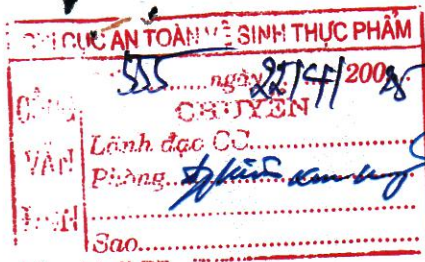 CHI CỤC AN TOÀN VỆ SINH THỰC PHẨM
555 ngày 22/4/200
CÔNG VĂN ĐẾN
CHUYỂN
Lãnh đạo CC
Phòng
Sao